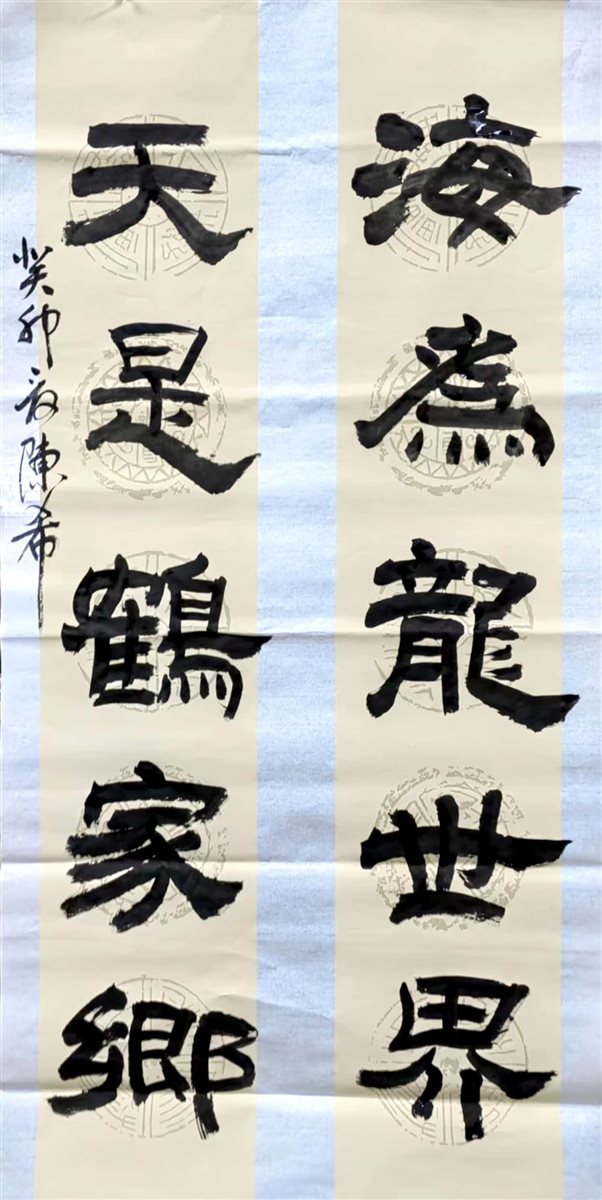 海為龍世界
天是鶴家鄉
癸卯 陳希